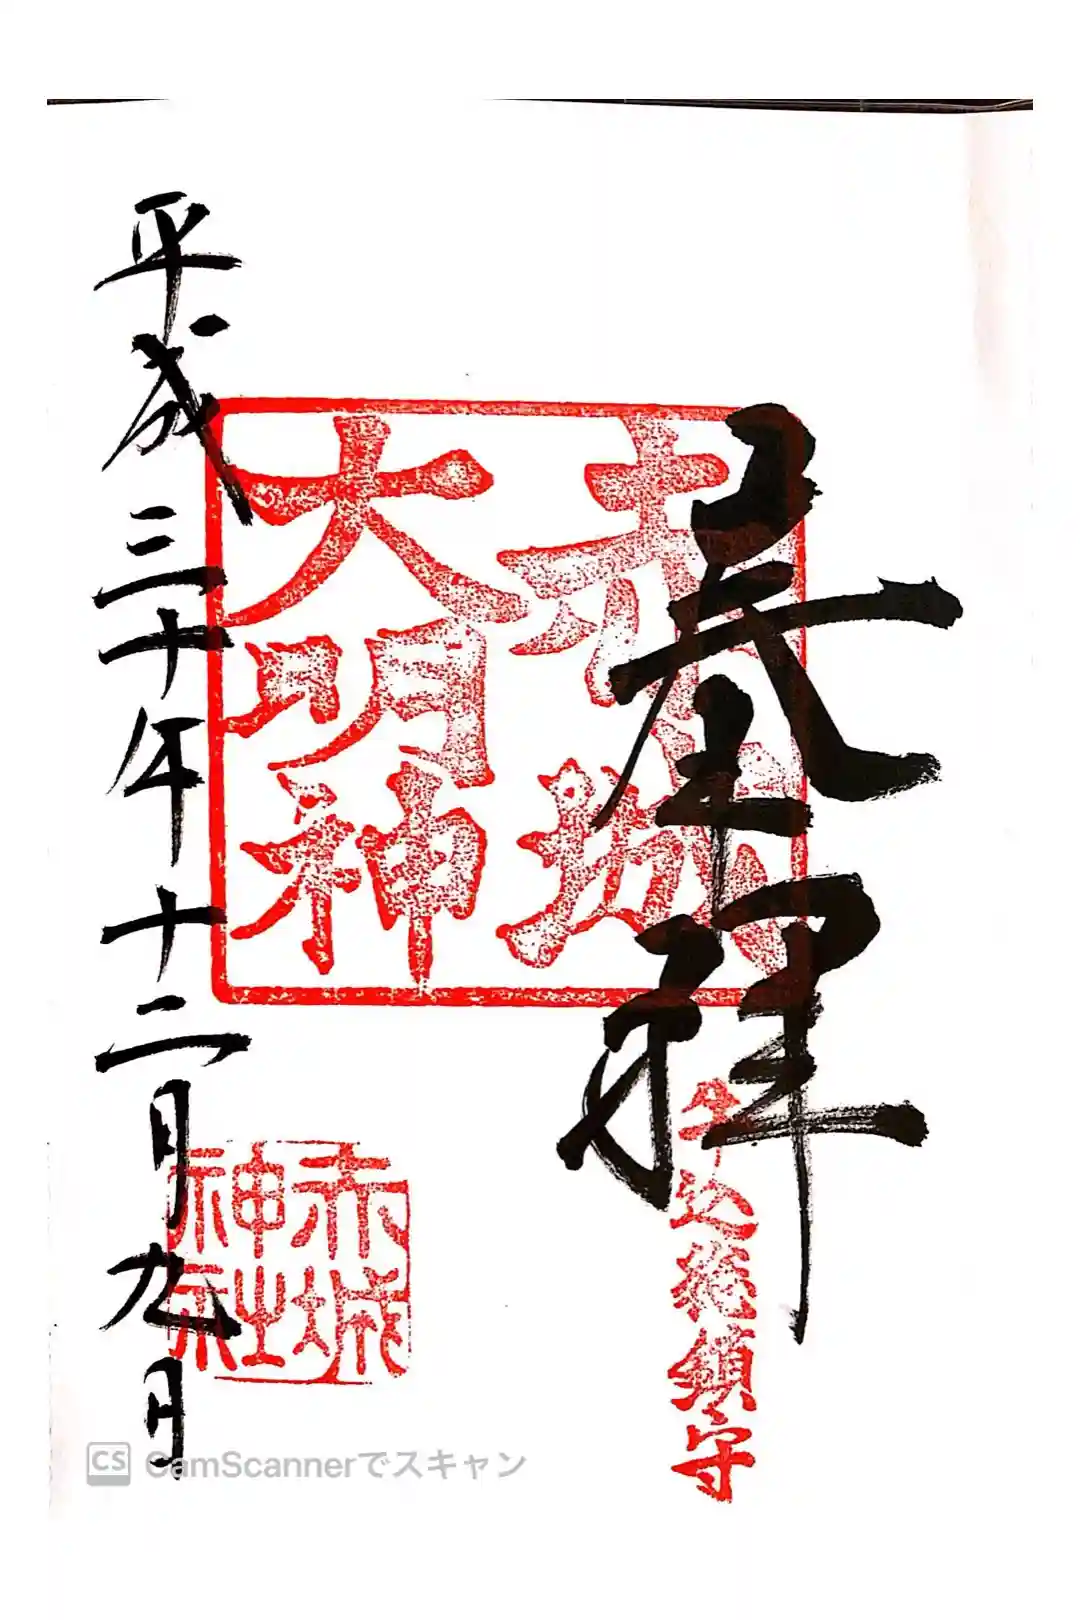 奉拝
牛込総鎮守
赤城
大明神
赤城
神社
平成三十年十二月九日
CS CamScannerでスキャン